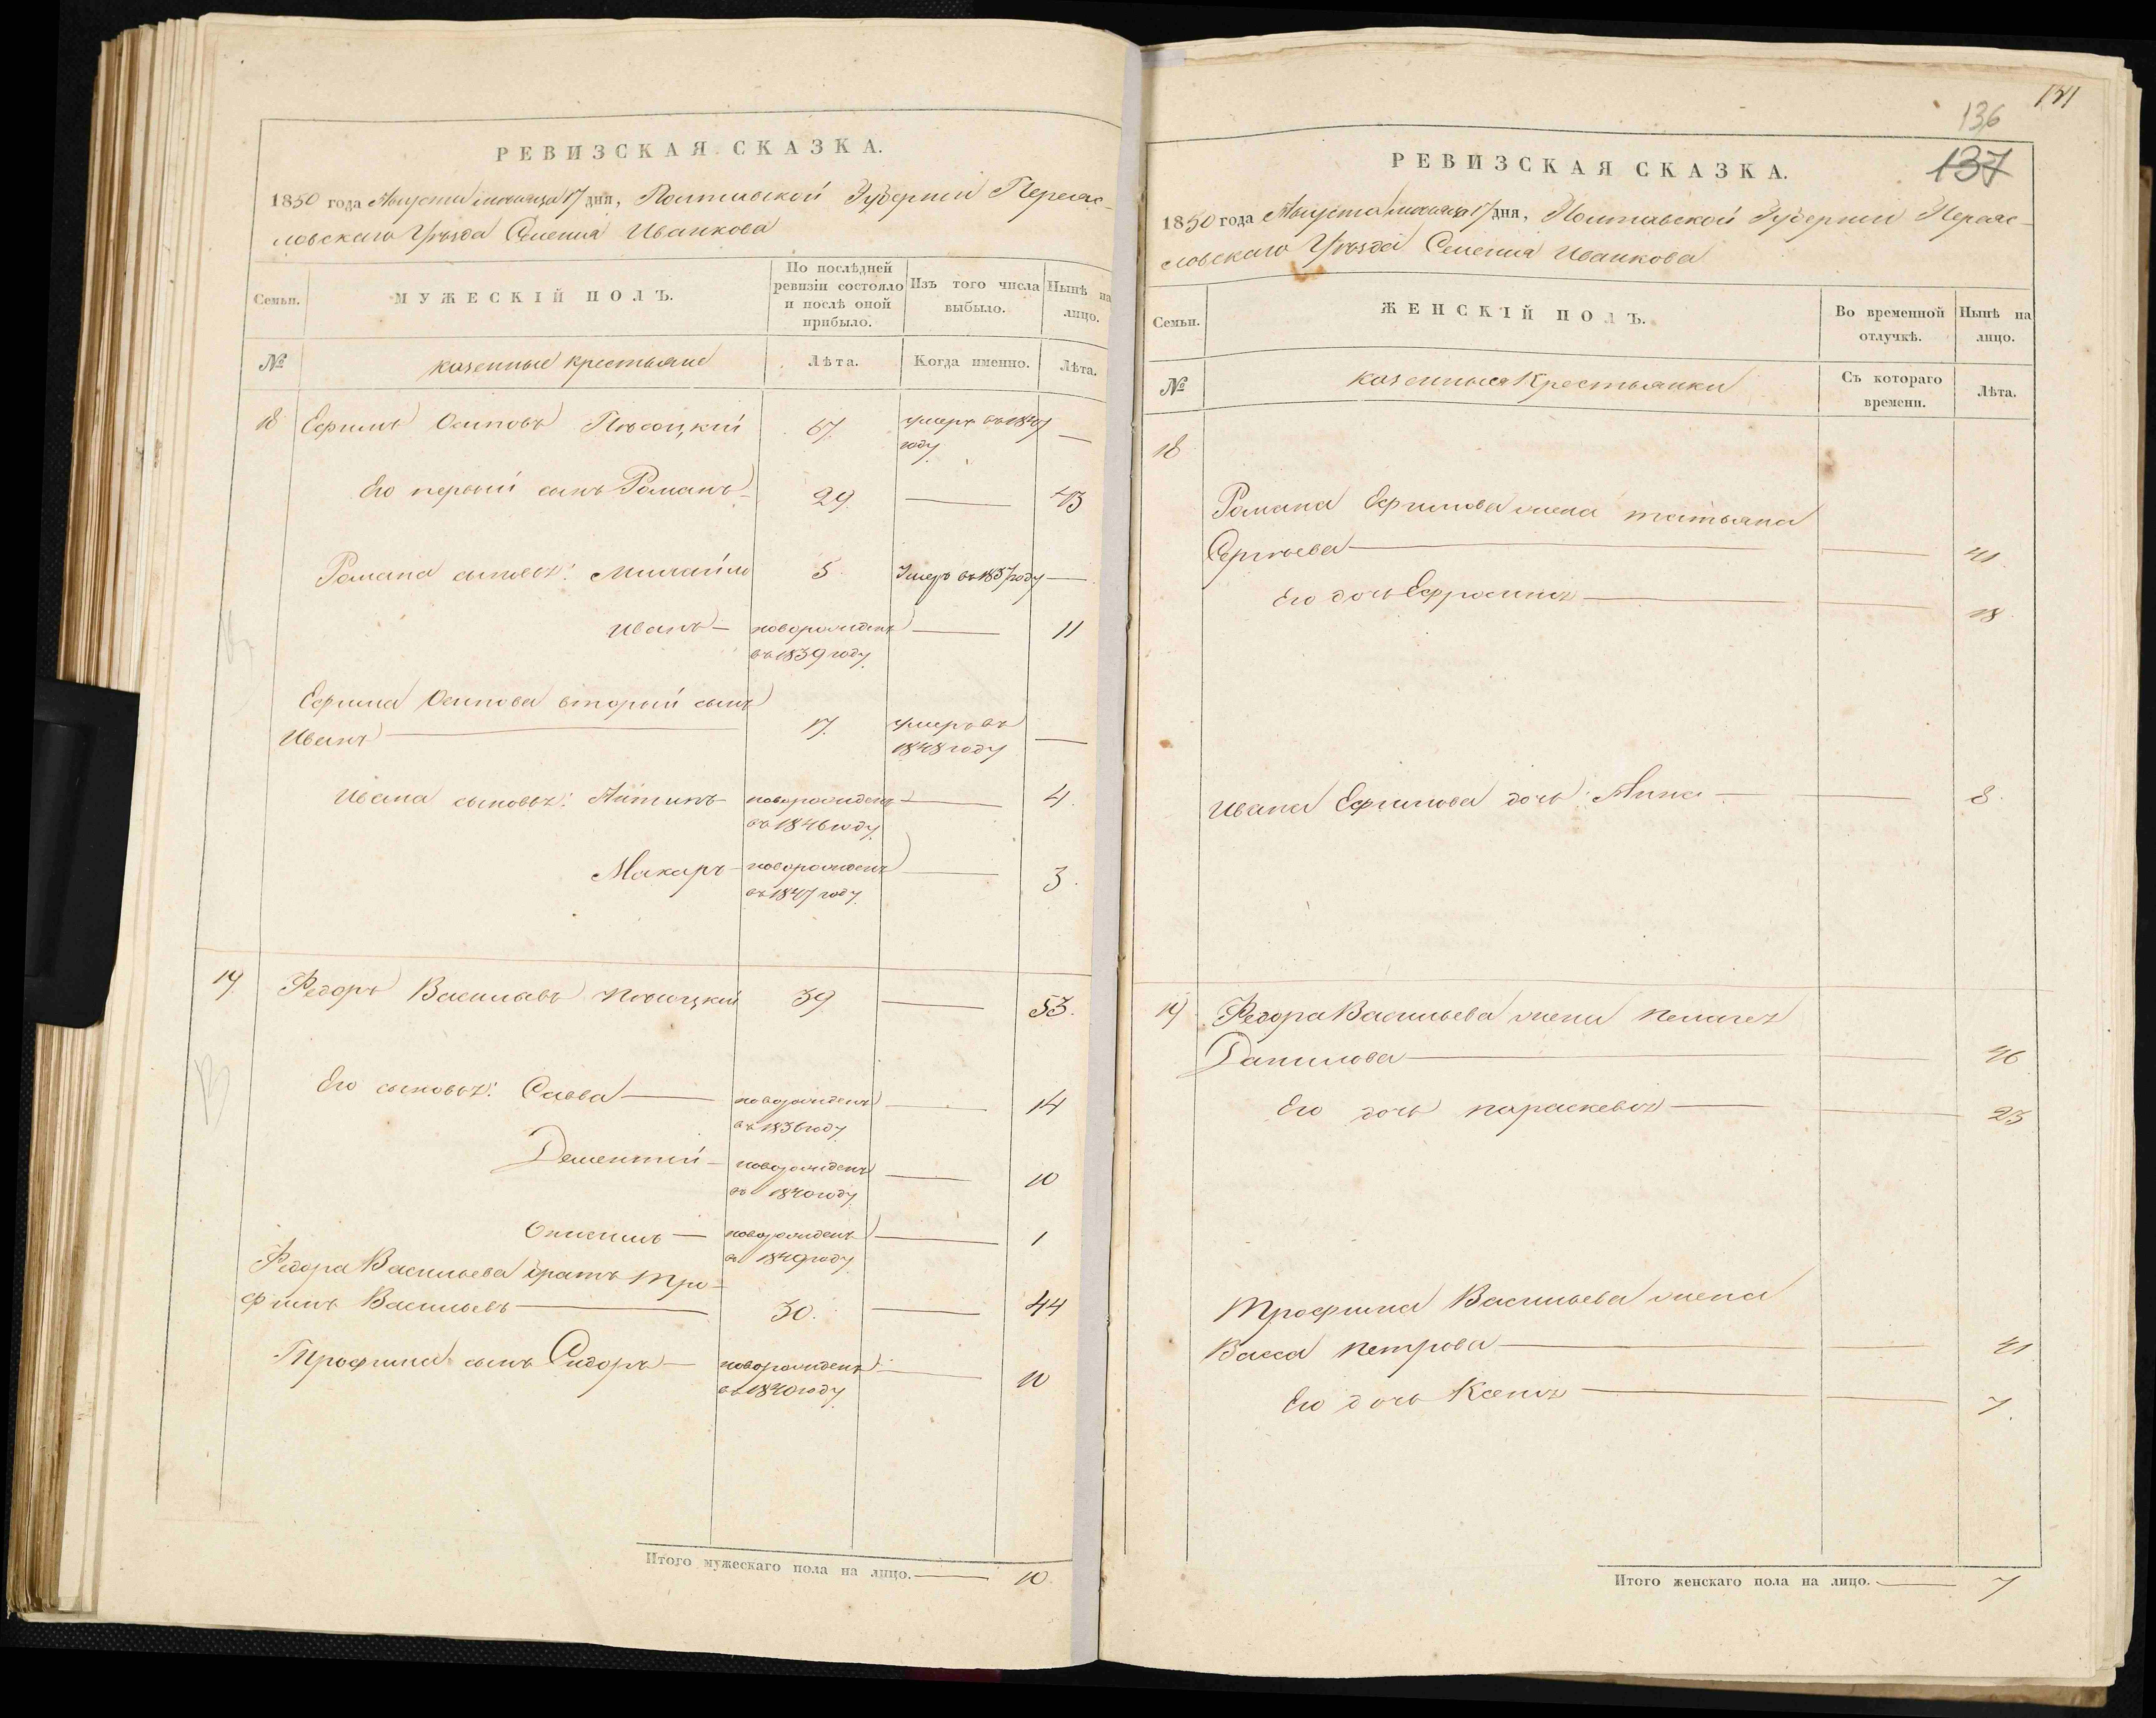 РЕВИЗСКАЯ СКАЗКА.
1850 года Августа месяца 17 дня, Полтавской Губернии Переяс-
ловскаго Уѣзда Селения Иванкова
Семьи.
МУЖЕСКІЙ ПОЛЪ.
По послѣдней ревизіи состояло и послѣ оной прибыло.
Изъ того числа выбыло.
Нынѣ на лицо.
№
казенные крестьяне
Лѣта.
Когда именно.
Лѣта.
18 Ефимъ Осиповъ Пѣсоцкий 67. умеръ въ 1847 году —
Его первый сынъ Романъ 29. — 43
Романа сыновья: Михайло 5 Умеръ въ 1837 году —
Иванъ — новорожденъ въ 1839 году — 11
Ефима Осипова вторый сынъ
Иванъ — 17. умеръ въ 1848 году —
Ивана сыновья: Антинъ новорожденъ въ 1846 году — 4.
Макаръ — новорожденъ въ 1847 году — 3.
19 Федоръ Васильевъ Пѣсоцкий 39 — 53.
Его сыновья: Савва — новорожденъ въ 1836 году — 14
Дементий — новорожденъ въ 1840 году — 10
Онисимъ — новорожденъ въ 1849 году — 1
Федора Васильева братъ Тро-
фимъ Васильевъ — 30. — 44
Трофима сынъ Сидоръ — новорожденъ въ 1840 году — 10
Итого мужескаго пола на лицо. — 10
131
136
137
РЕВИЗСКАЯ СКАЗКА.
1850 года Августа месяца 17 дня, Полтавской Губернии Переяс-
ловскаго Уѣзда Селения Иванкова
Семьи.
ЖЕНСКІЙ ПОЛЪ.
Во временной отлучкѣ.
Нынѣ на лицо.
№
казенныя Крестьянки
Съ котораго времени.
Лѣта.
18
Романа Ефимова жена татьяна
Сергѣева — 41
Его дочь Ефросиния — 18
Ивана Ефимова дочь: Анна — 8
19 Федора Васильева жена пелагея
Данилова — 46
Его дочь параскевия — 23
Трофима Васильева жена
Васса петрова — 41
Его дочь Ксения — 7.
Итого женскаго пола на лицо. — 7